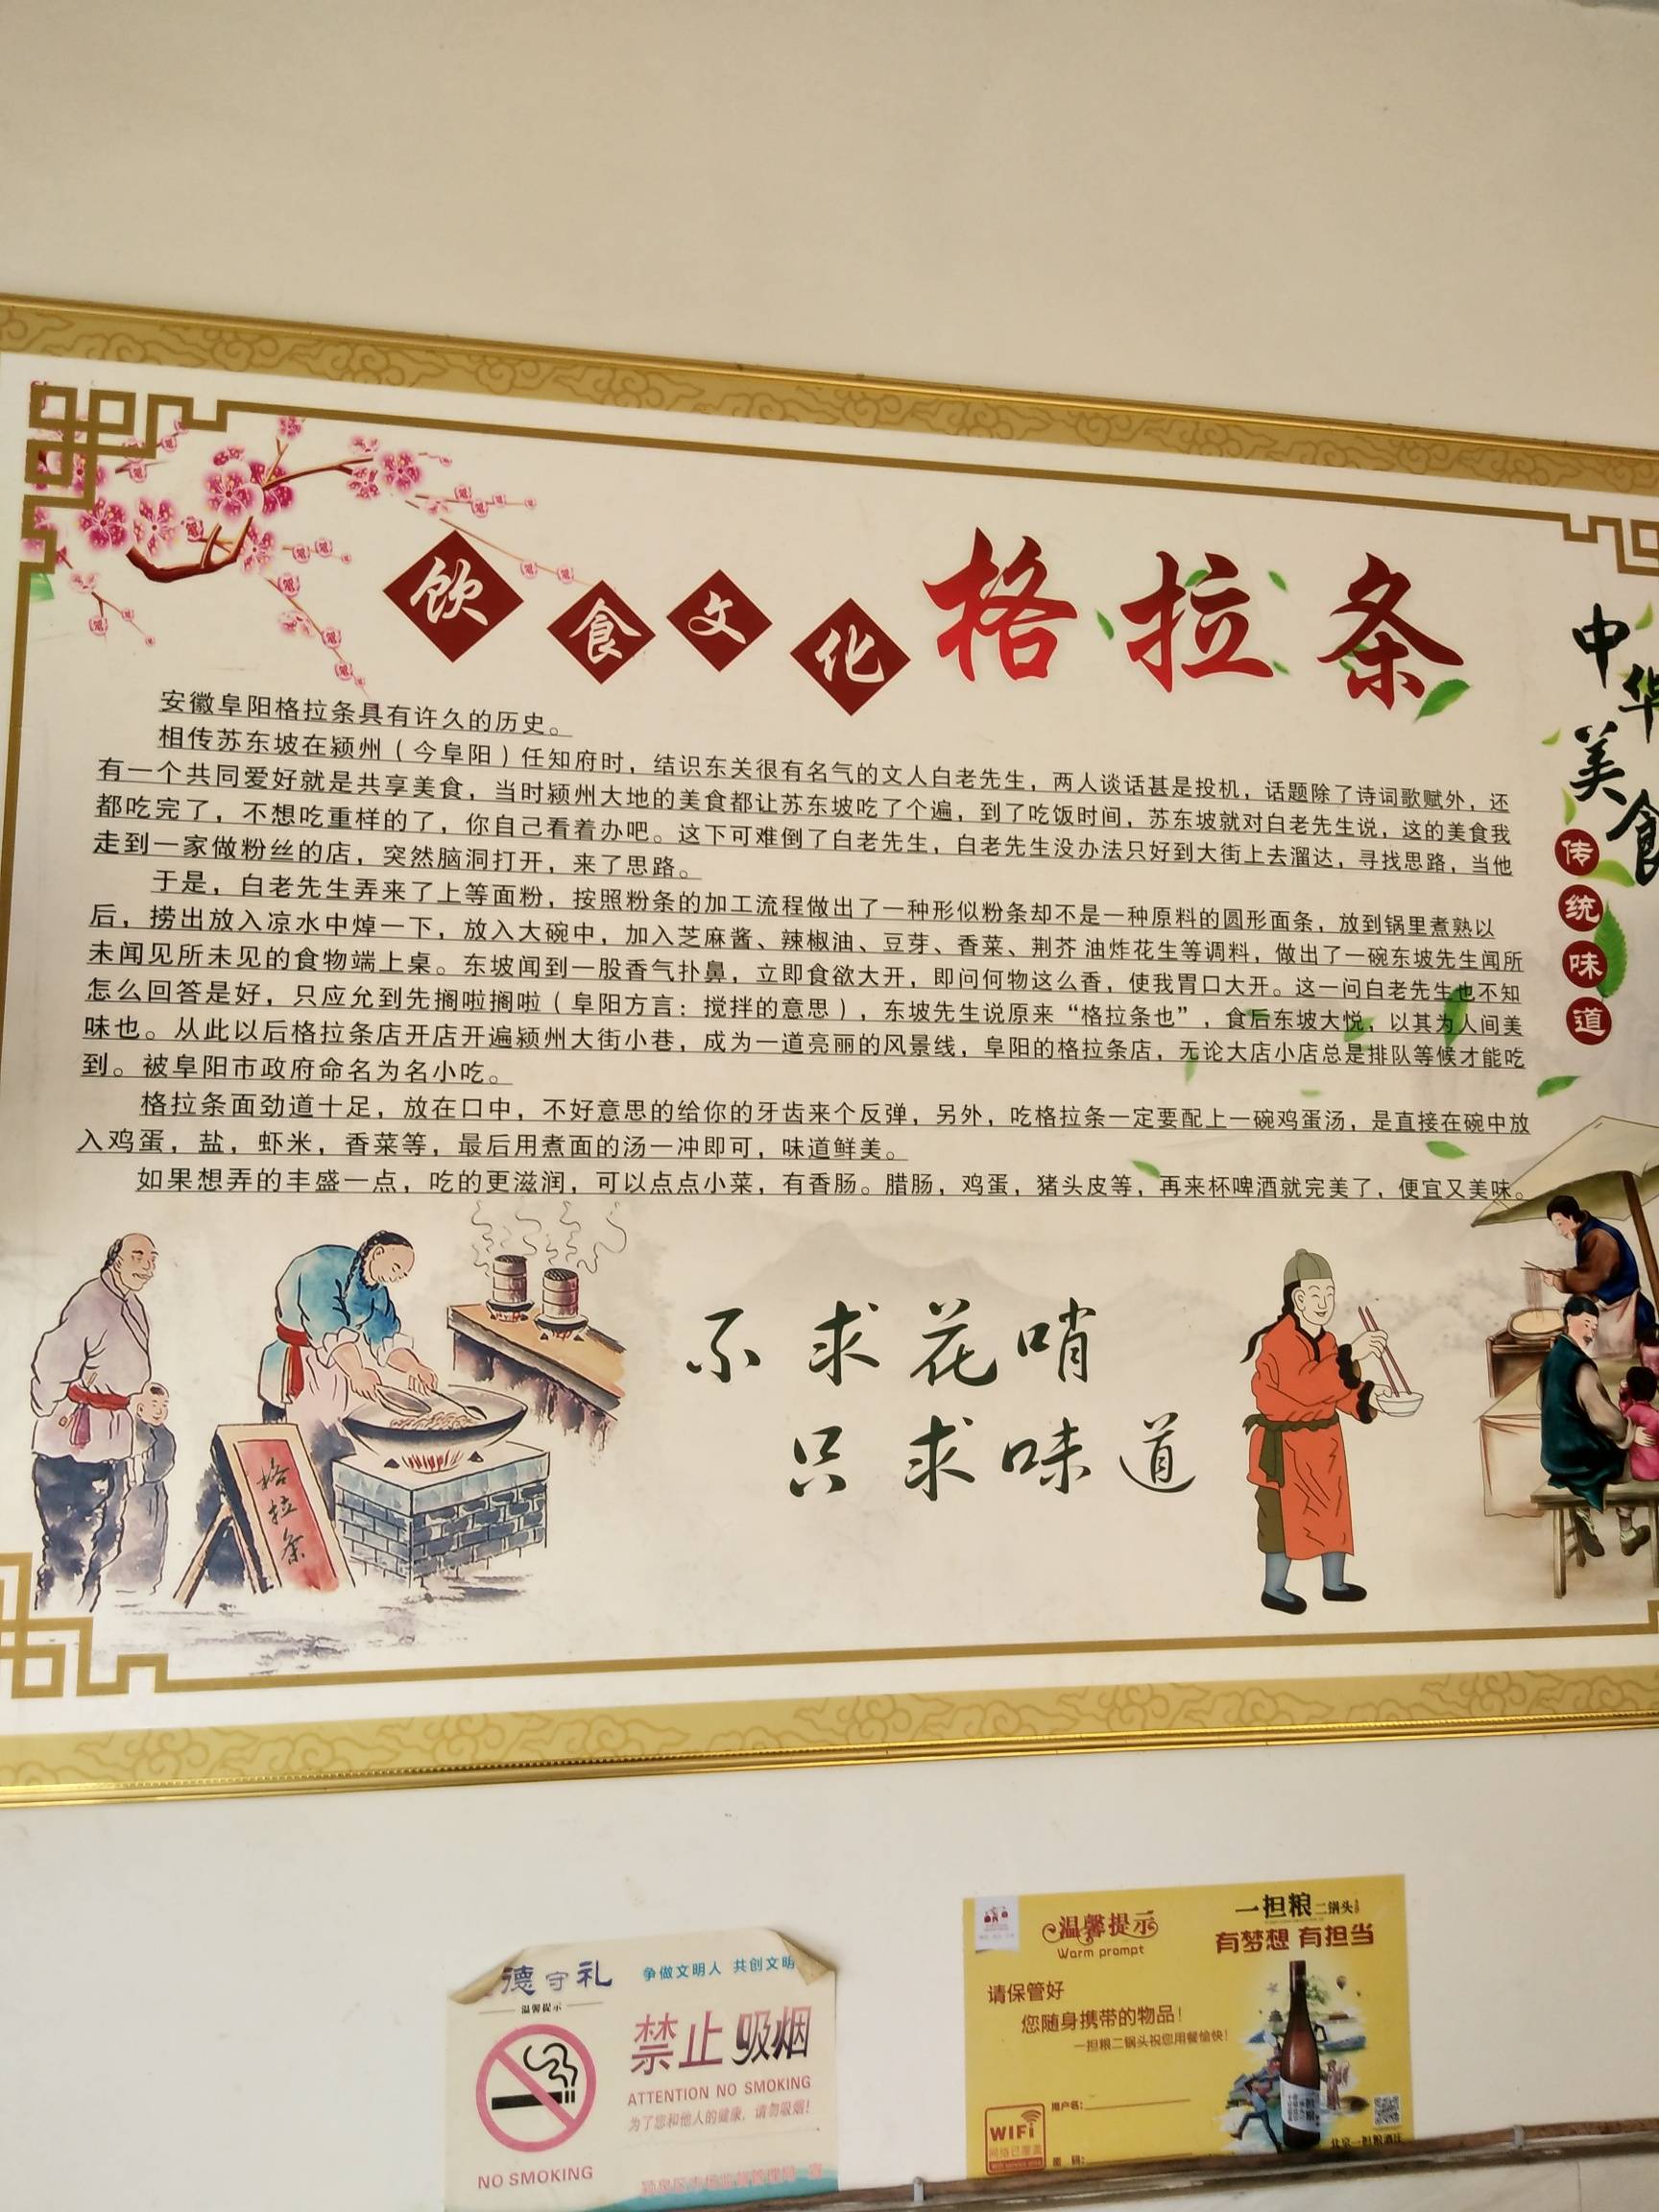 饮食文化 格拉条
安徽阜阳格拉条具有许久的历史。
相传苏东坡在颍州（今阜阳）任知府时，结识东关很有名气的文人白老先生，两人谈话甚是投机，话题除了诗词歌赋外，还
有一个共同爱好就是共享美食，当时颍州大地的美食都让苏东坡吃了个遍，到了吃饭时间，苏东坡就对白老先生说，这的美食我
都吃完了，不想吃重样的了，你自己看着办吧。这下可难倒了白老先生，白老先生没办法只好到大街上去溜达，寻找思路，当他
走到一家做粉丝的店，突然脑洞打开，来了思路。
于是，白老先生弄来了上等面粉，按照粉条的加工流程做出了一种形似粉条却不是一种原料的圆形面条，放到锅里煮熟以
后，捞出放入凉水中焯一下，放入大碗中，加入芝麻酱、辣椒油、豆芽、香菜、荆芥 油炸花生等调料，做出了一碗东坡先生闻所
未闻见所未见的食物端上桌。东坡闻到一股香气扑鼻，立即食欲大开，即问何物这么香，使我胃口大开。这一问白老先生也不知
怎么回答是好，只应允到先搁啦搁啦（阜阳方言：搅拌的意思），东坡先生说原来“格拉条也”，食后东坡大悦，以其为人间美
味也。从此以后格拉条店开店开遍颍州大街小巷，成为一道亮丽的风景线，阜阳的格拉条店，无论大店小店总是排队等候才能吃
到。被阜阳市政府命名为名小吃。
格拉条面劲道十足，放在口中，不好意思的给你的牙齿来个反弹，另外，吃格拉条一定要配上一碗鸡蛋汤，是直接在碗中放
入鸡蛋，盐，虾米，香菜等，最后用煮面的汤一冲即可，味道鲜美。
如果想弄的丰盛一点，吃的更滋润，可以点点小菜，有香肠。腊肠，鸡蛋，猪头皮等，再来杯啤酒就完美了，便宜又美味。
中华
美食
传统味道
格拉条
不求花哨
只求味道
德守礼
温馨提示
争做文明人 共创文明
禁止吸烟
ATTENTION NO SMOKING
为了您和他人的健康，请勿吸烟！
NO SMOKING
温馨提示
Warm prompt
一担粮二锅头
有梦想 有担当
请保管好
您随身携带的物品！
一担粮二锅头祝您用餐愉快！
WiFi
网络已覆盖
用户名：
密 码：
北京一担粮酒庄